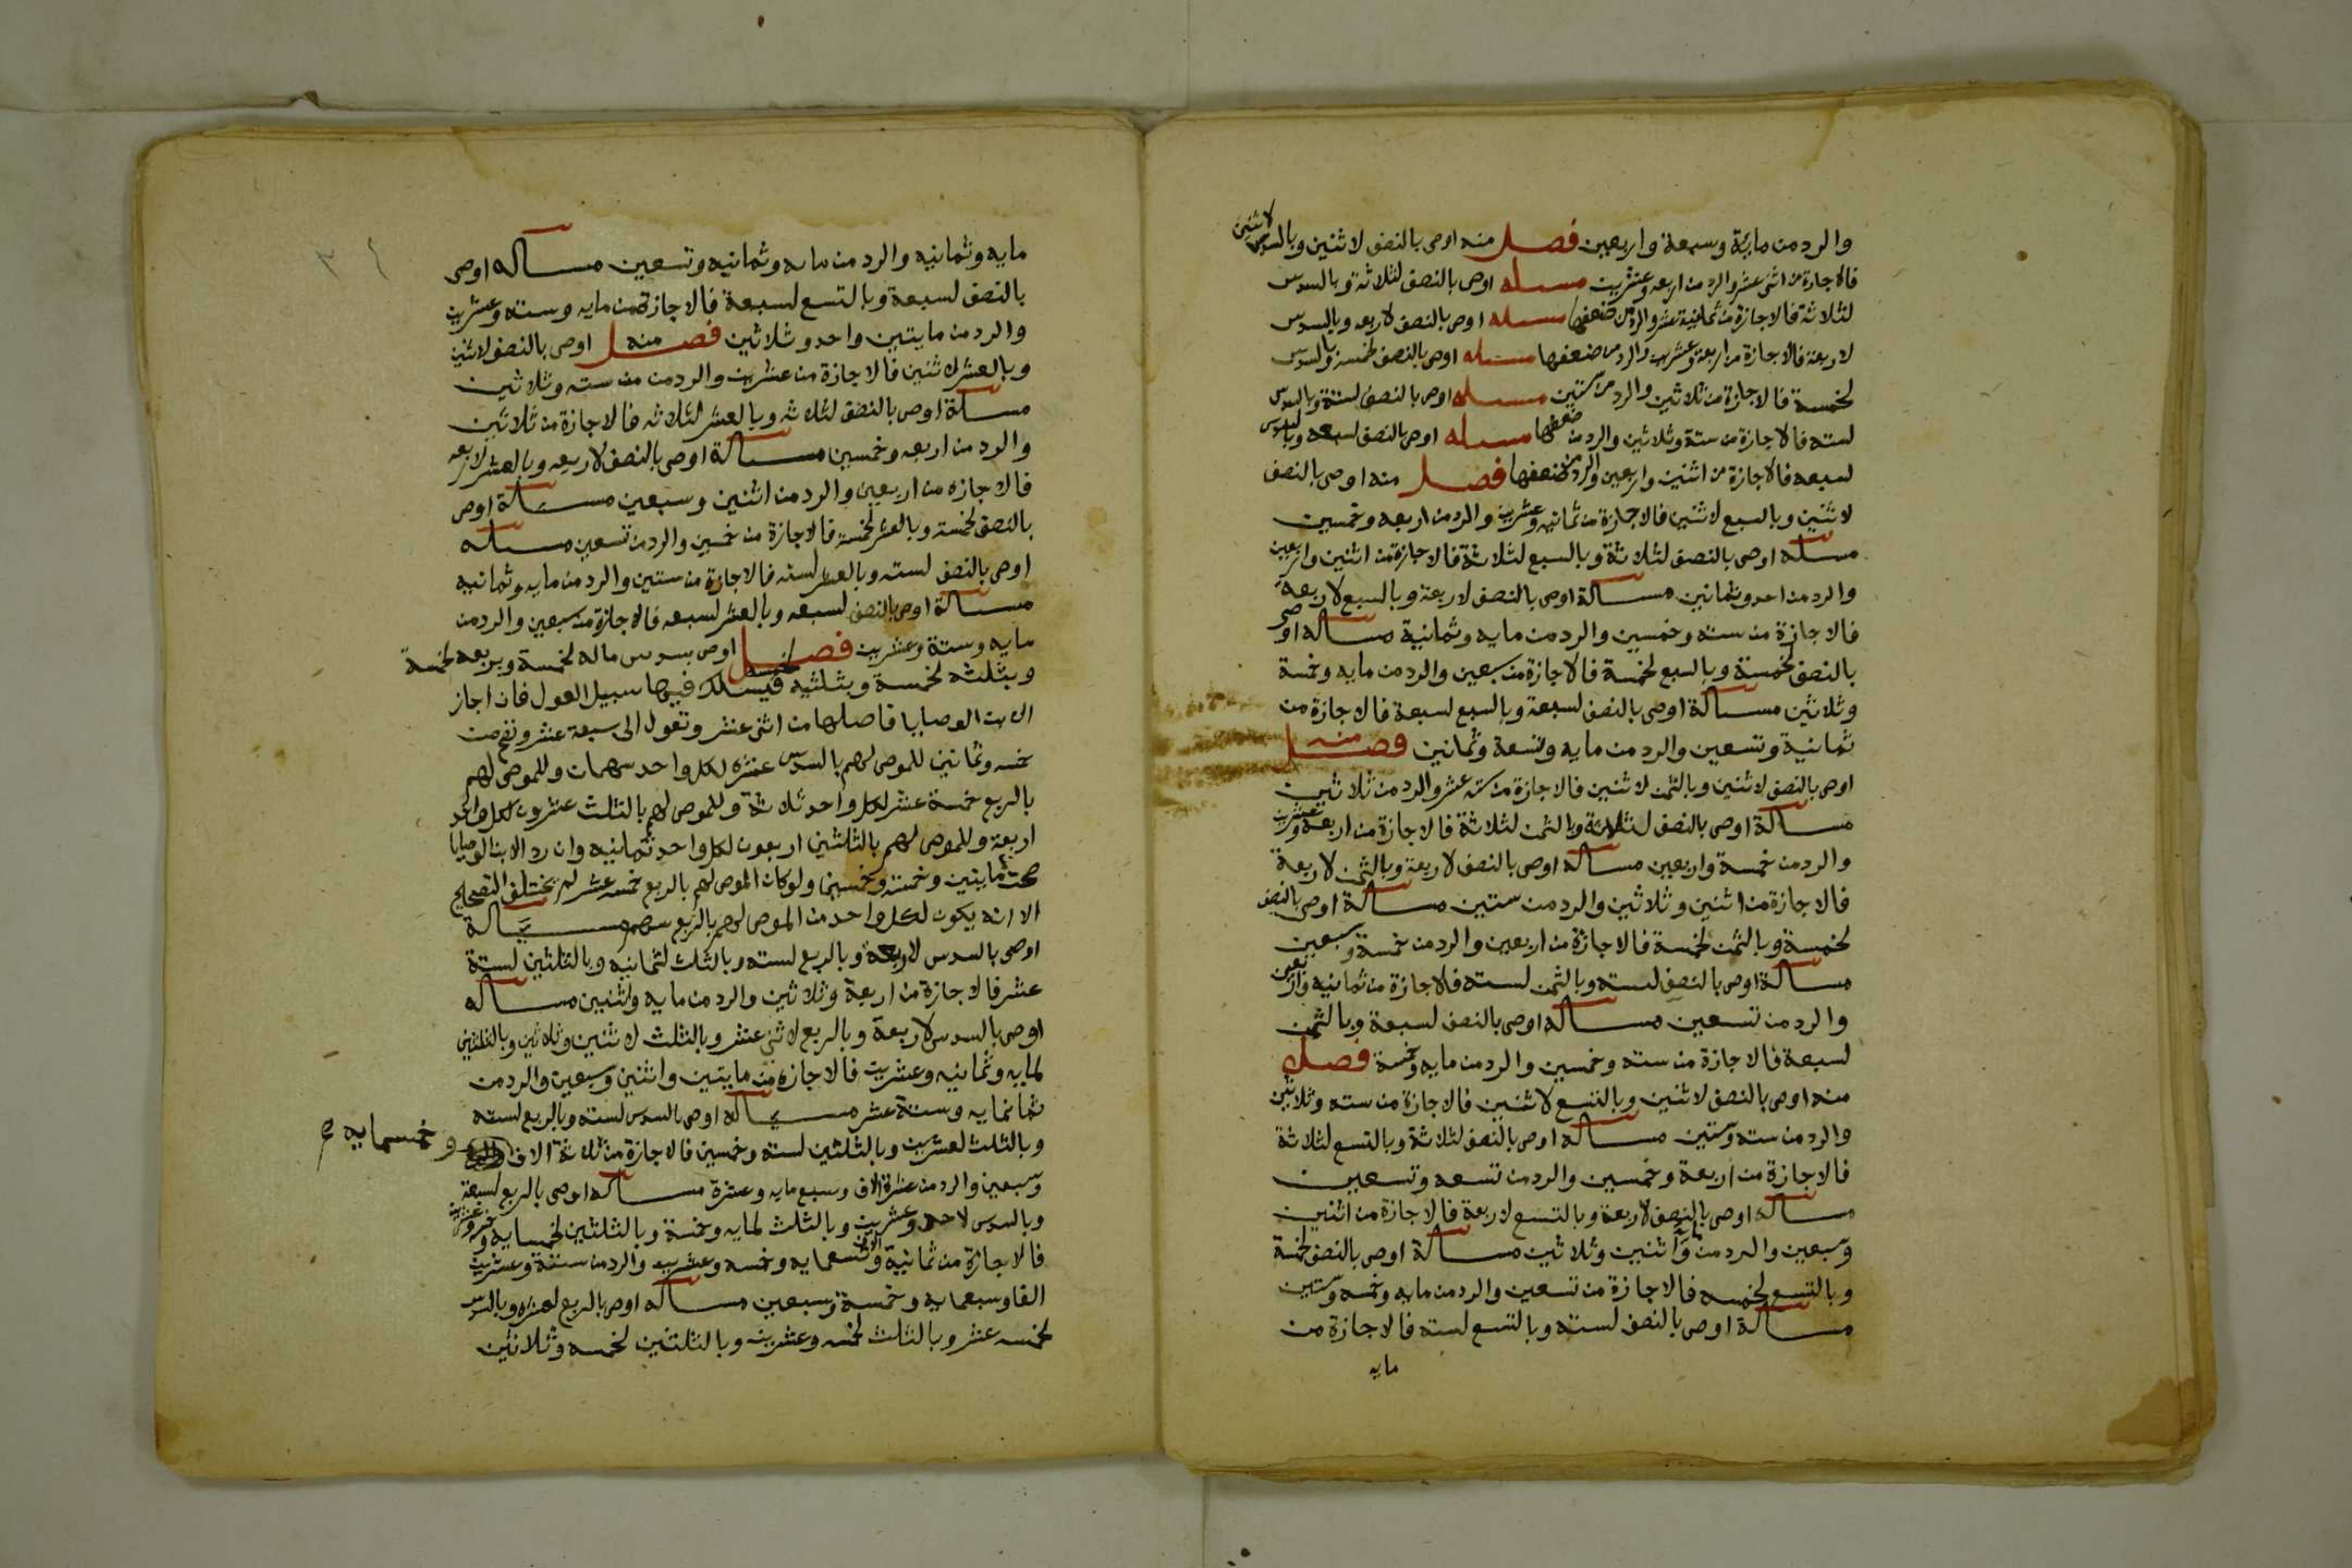 والرد من مايئة وسبعة واربعين فصل منه اوصى بالنصف لاثنين وبالسدس لاثنين
فالاجازة من اثنى عشر والرد من اربعه وعشرين مسله اوصى بالنصف لثلاثة وبالسدس
لثلاثة فالاجازة من ثمانية عشر والرد من ضعفها مسله اوصى بالنصف لاربعه وبالسدس
لاربعة فالاجازة من اربعة وعشرين والرد من ضعفها مسله اوصى بالنصف لخمسة وبالسدس
لخمسة فالاجازة من ثلاثين والرد من ستين مسله اوصى بالنصف لستة وبالسدس
لسته فالاجازة من ستة وثلاثين والرد من ضعفها مسله اوصى بالنصف لسبعه وبالسدس
لسبعه فالاجازة من اثنين واربعين والرد من ضعفها فصل منه اوصى بالنصف
لاثنين وبالسبع لاثنين فالاجازة من ثمانيه وعشرين والرد من اربعه وخمسين
مسله اوصى بالنصف لثلاثة وبالسبع لثلاثة فالاجازة من اثنين واربعين
والرد من احد وثمانين مسالة اوصى بالنصف لاربعة وبالسبع لاربعة
فالاجازة من سته وخمسين والرد من مايه وثمانية مساله اوصى
بالنصف لخمسة وبالسبع لخمسة فالاجازة من سبعين والرد من مايه وخمسة
وثلاثين مسالة اوصى بالنصف لسبعة وبالسبع لسبعة فالاجازة من
ثمانية وتسعين والرد من مايه وتسعة وثمانين فصل منه
اوصى بالنصف لاثنين وبالثمن لاثنين فالاجازة من سته عشر والرد من ثلاثين
مسالة اوصى بالنصف لثلاثة وبالثمن لثلاثة فالاجازة من اربعة وعشرين
والرد من خمسة واربعين مساله اوصى بالنصف لاربعة وبالثمن لاربعة
فالاجازة من اثنين وثلاثين والرد من ستين مسالة اوصى بالنصف
لخمسة وبالثمن لخمسة فالاجازة من اربعين والرد من خمسة وسبعين
مسالة اوصى بالنصف لسته وبالثمن لسته فالاجازة من ثمانيه واربعين
والرد من تسعين مساله اوصى بالنصف لسبعة وبالثمن
لسبعة فالاجازة من سته وخمسين والرد من مايه وخمسة فصل
منه اوصى بالنصف لاثنين وبالتسع لاثنين فالاجازة من سته وثلاثين
والرد من سته وستين مساله اوصى بالنصف لثلاثة وبالتسع لثلاثة
فالاجازة من اربعة وخمسين والرد من تسعه وتسعين
مساله اوصى بالنصف لاربعة وبالتسع لاربعة فالاجازة من اثنين
وسبعين والرد من مايه واثنين وثلاثين مسالة اوصى بالنصف لخمسة
وبالتسع لخمسه فالاجازة من تسعين والرد من مايه وخمسه وستين
مسالة اوصى بالنصف لسته وبالتسع لسته فالاجازة من
مايه
مايه وثمانيه والرد من مايه وثمانيه وتسعين مساله اوصى
بالنصف لسبعة وبالتسع لسبعة فالاجازة من مايه وسته وعشرين
والرد من مايتين واحد وثلاثين فصل منه اوصى بالنصف لاثنين
وبالعشر لاثنين فالاجازة من عشرين والرد من من سته وثلاثين
مسالة اوصى بالنصف لثلاثه وبالعشر لثلاثه فالاجازة من ثلاثين
والرد من اربعه وخمسين مسالة اوصى بالنصف لاربعه وبالعشر لاربعه
فالاجازه من اربعين والرد من اثنين وسبعين مسئلة اوصى
بالنصف لخمسة وبالعشر لخمسة فالاجازة من خمسين والرد من تسعين مسئله
اوصى بالنصف لسته وبالعشر لسته فالاجازة من ستين والرد من مايه وثمانيه
مسالة اوصى بالنصف لسبعه وبالعشر لسبعه فالاجازة من سبعين والرد من
مايه وستة وعشرين فصل اوصى بسدس ماله لخمسة وبربعه لخمسة
وبثلثه لخمسة وبثلثيه لخمسة فيسلك فيها سبيل العول فان اجاز
الابن الوصايا فاصلها من اثنى عشر وتعول الى سبعة عشر وتصح من
خمسه وثمانين للموصى لهم بالسدس عشره لكل واحد سهمان وللموصى لهم
بالربع خمسة عشر لكل واحد ثلاثة وللموصى لهم بالثلث عشرون لكل واحد
اربعة وللموصى لهم بالثلثين اربعون لكل واحد ثمانيه وان رد الابن الوصايا
صحت من مايتين وخمسة وخمسين ولو كان الموصى لهم بالربع خمسه عشر لم يختلف التصحيح
الا انه يكون لكل واحد من الموصى لهم بالربع سهم مسالة
اوصى بالسدس لاربعة وبالربع لسته وبالثلث لثمانيه وبالثلثين لستة
عشر فالاجازة من اربعة وثلاثين والرد من مايه واثنين مساله
اوصى بالسدس لاربعة وبالربع لاثنى عشر وبالثلث لاثنين وثلاثين وبالثلثين
لمايه وثمانيه وعشرين فالاجازه من مايتين واثنين وسبعين والرد من
ثمانمايه وستة عشر مساله اوصى بالسدس لسته وبالربع لسته
وبالثلث لعشرين وبالثلثين لسته وخمسين فالاجازة من ثلاثة الاف وخمسمايه صح
وسبعين والرد من عشرة الاف وسبع مايه وعشرة مساله اوصى بالربع لسبعة
وبالسدس لاحد وعشرين وبالثلث لمايه وخمسة وبالثلثين لخمسمايه وخمسه وعشرين
فالاجازة من ثمانية الاف وتسعمايه وخمسه وعشرين والرد من ستة وعشرين
الفا وسبعمايه وخمسة وسبعين مساله اوصى بالربع لعشره وبالسدس
لخمسه عشر وبالثلث لخمسه وعشرين وبالثلثين لخمسه وثلاثين